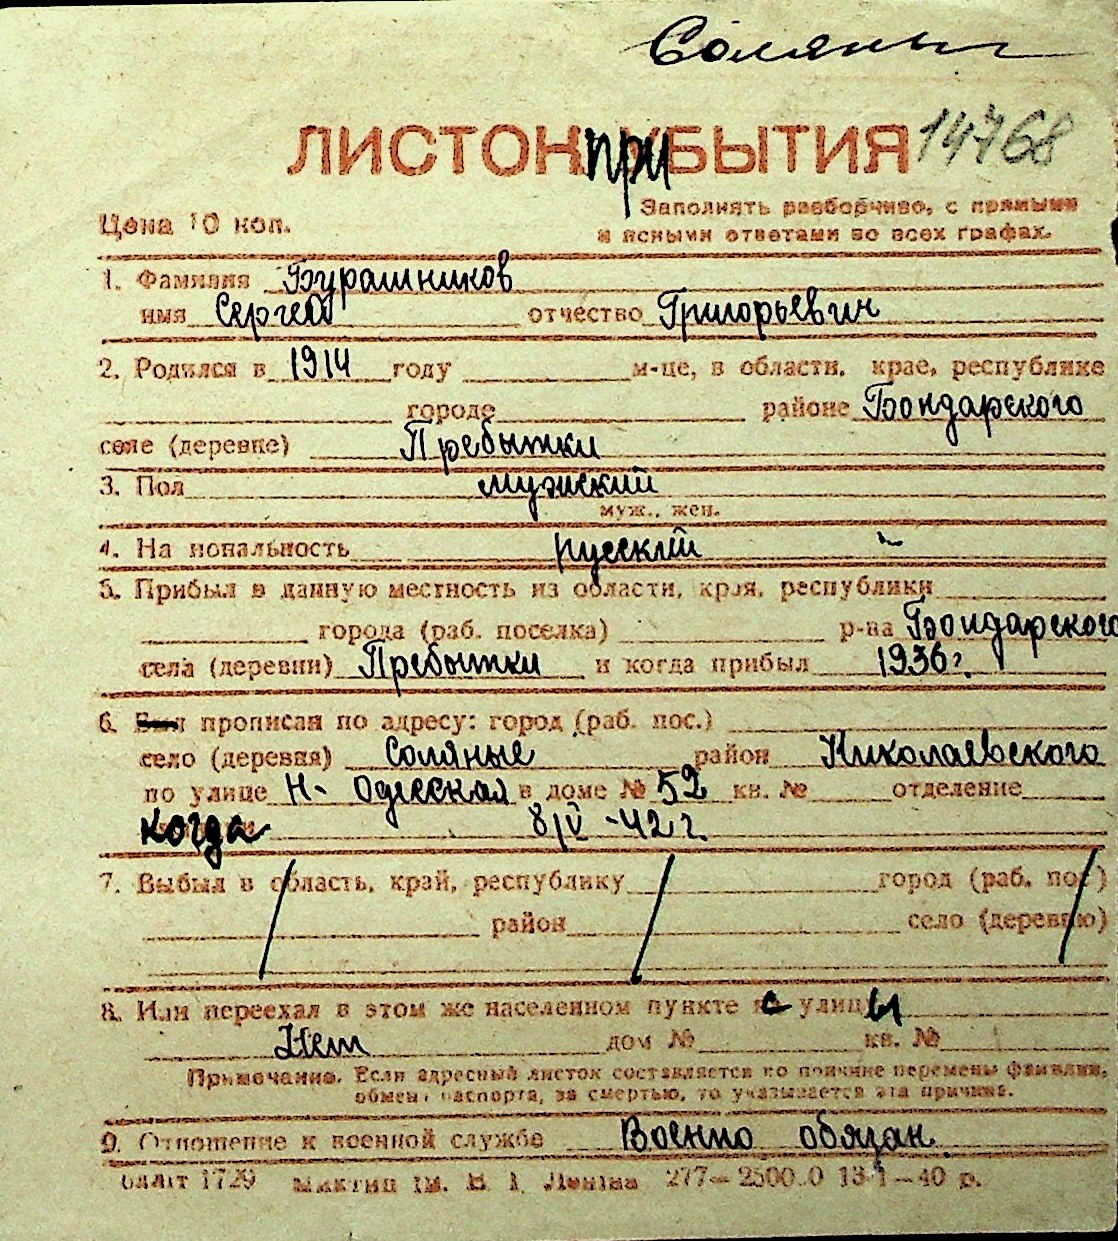 Соляные
ЛИСТОК ПРИБЫТИЯ 14768
Цена 10 коп.
Заполнять разборчиво, с прямыми
и ясными ответами во всех графах.
1. Фамилия Бурашников
имя Сергей отчество Григорьевич
2. Родился в 1914 году м-це, в области, крае, республике
городе районе Бондарского
селе (деревне) Пребытки
3. Пол мужский
муж., жен.
4. На иональность русский
5. Прибыл в данную местность из области, края, республики
города (раб. поселка) р-на Бондарского
села (деревни) Пребытки и когда прибыл 1936 г.
6. прописан по адресу: город (раб. пос.)
село (деревня) Соляные район Николаевского
по улице Н-Одесская в доме № 52 кв. № отделение
когда 8/IV-42 г.
7. Выбыл в область, край, республику город (раб. пос)
район село (деревню)
8. Или переехал в этом же населенном пункте с улицы
Нет дом № кв. №
Примечание. Если адресный листок составляется по причине перемены фамилии,
обмен паспорта, за смертью, то указывается эта причина.
9. Отношение к военной службе Военно обязан
1729 ім. В. І. Леніна 277— 13 1—40 р.